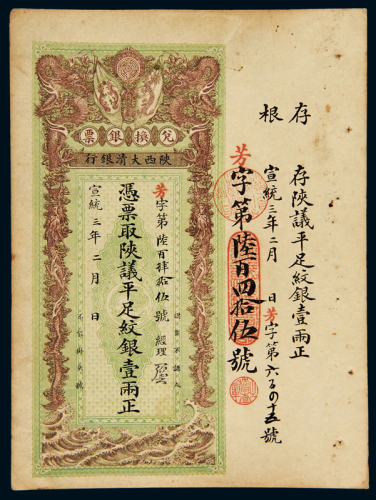 存根
存陝議平足紋銀壹兩正
宣統三年二月 日芳字第六百四十五號
芳字第陸百四拾伍號
兌換銀票
陝西大清銀行
芳字第陸百肆拾伍號 經理
憑票取陝議平足紋銀壹兩正
宣統三年二月 日